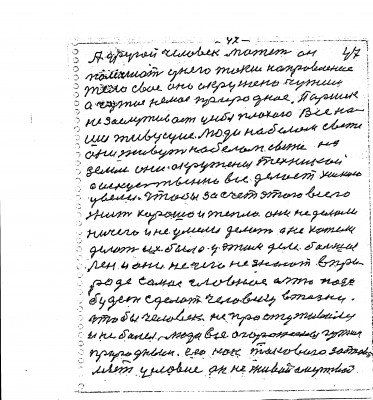 - 47 - 47
А другой человек может он
помешает у него токи направление
тело свое оно окружено чужим
а чужое немое природное. Паршек
не заслуживает у себя плохого Все на-
ши живущие люди на белом свете
они живут на белом свете на
земле они окружены техникой
искусственно все делают химию
ввели. Чтобы за счет этого всего
жить хорошо и тепло они не делали
ничего и не умели делать они хотели
делать их было у этом деле болел
лен и они нечего не знают в при
роде самое главное а это надо
будет сделать человеку в жизни.
чтобы человек не простуживался
и не болел. люди все огорожены чужим
природным. его как такового
условие он не живой мертвой.